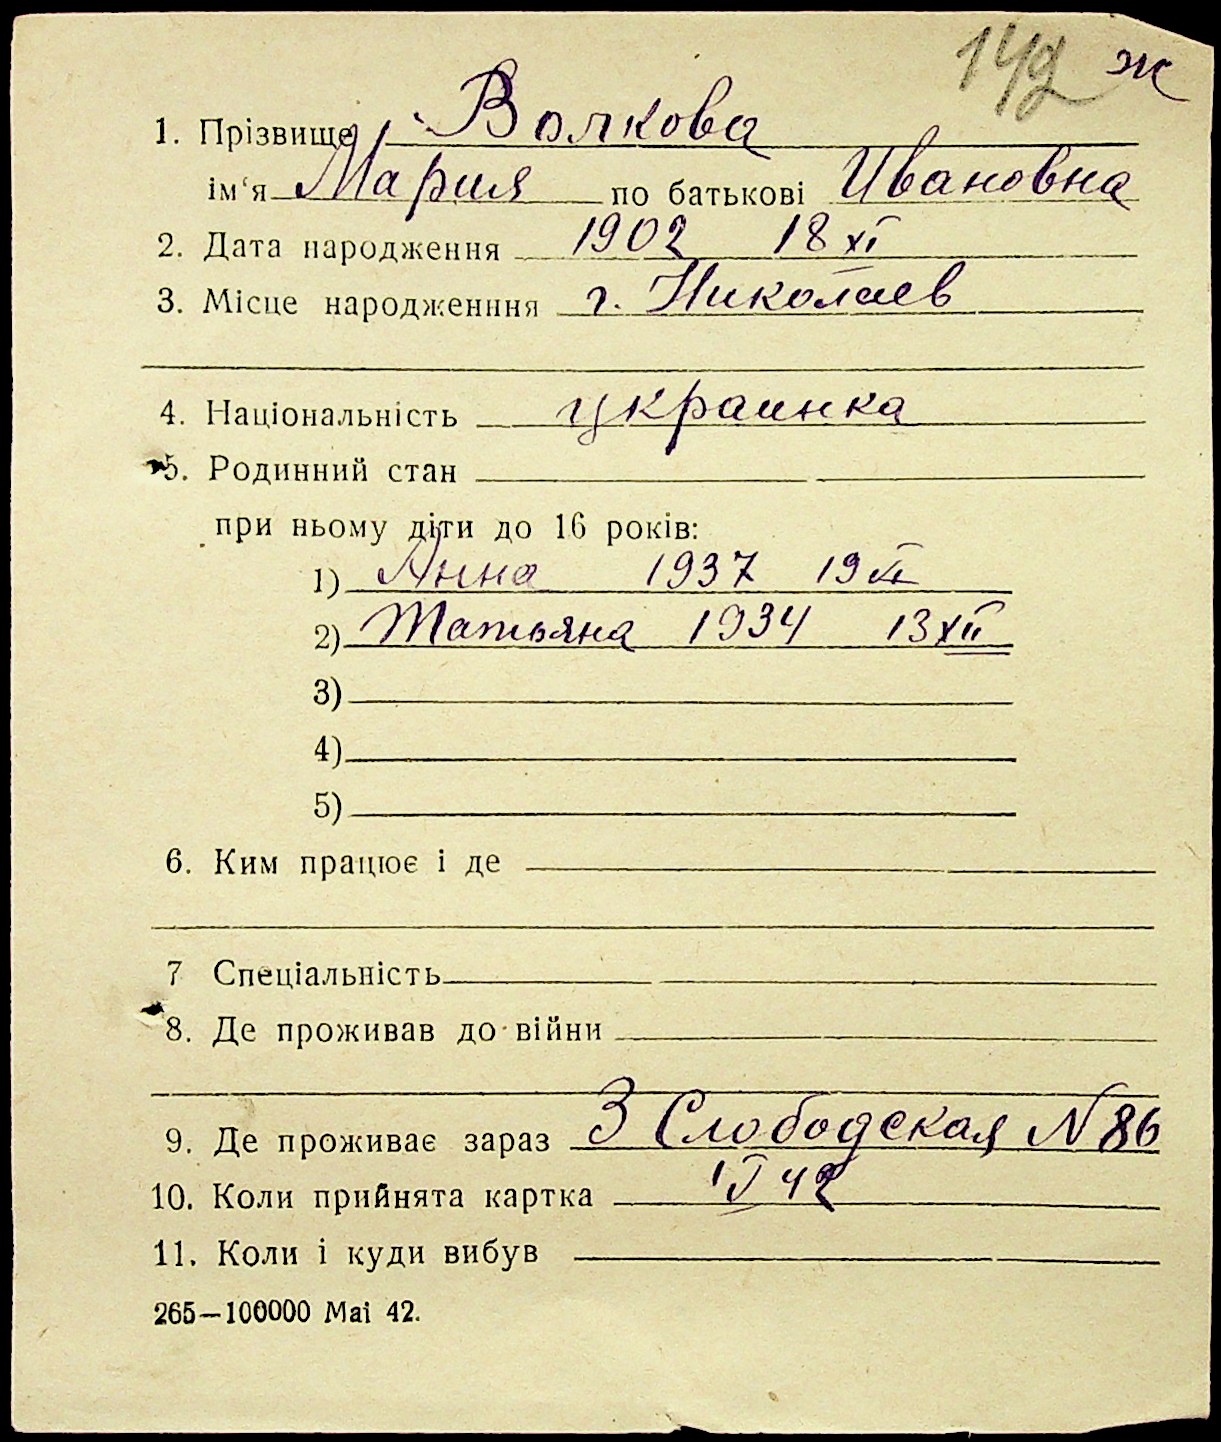 142 ж
1. Прізвище Волкова
ім‘я Мария по батькові Ивановна
2. Дата народження 1902 18 XI
3. Місце народженння г. Николаев
4. Національність украинка
5. Родинний стан
при ньому діти до 16 років:
1) Анна 1937 19
2) Татьяна 1934 13 XII
3)
4)
5)
6. Ким працює і де
7 Спеціальність
8. Де проживав до війни
9. Де проживає зараз 3 Слободская N 86
10. Коли прийнята картка 42
11. Коли і куди вибув
265—100000 Mai 42.